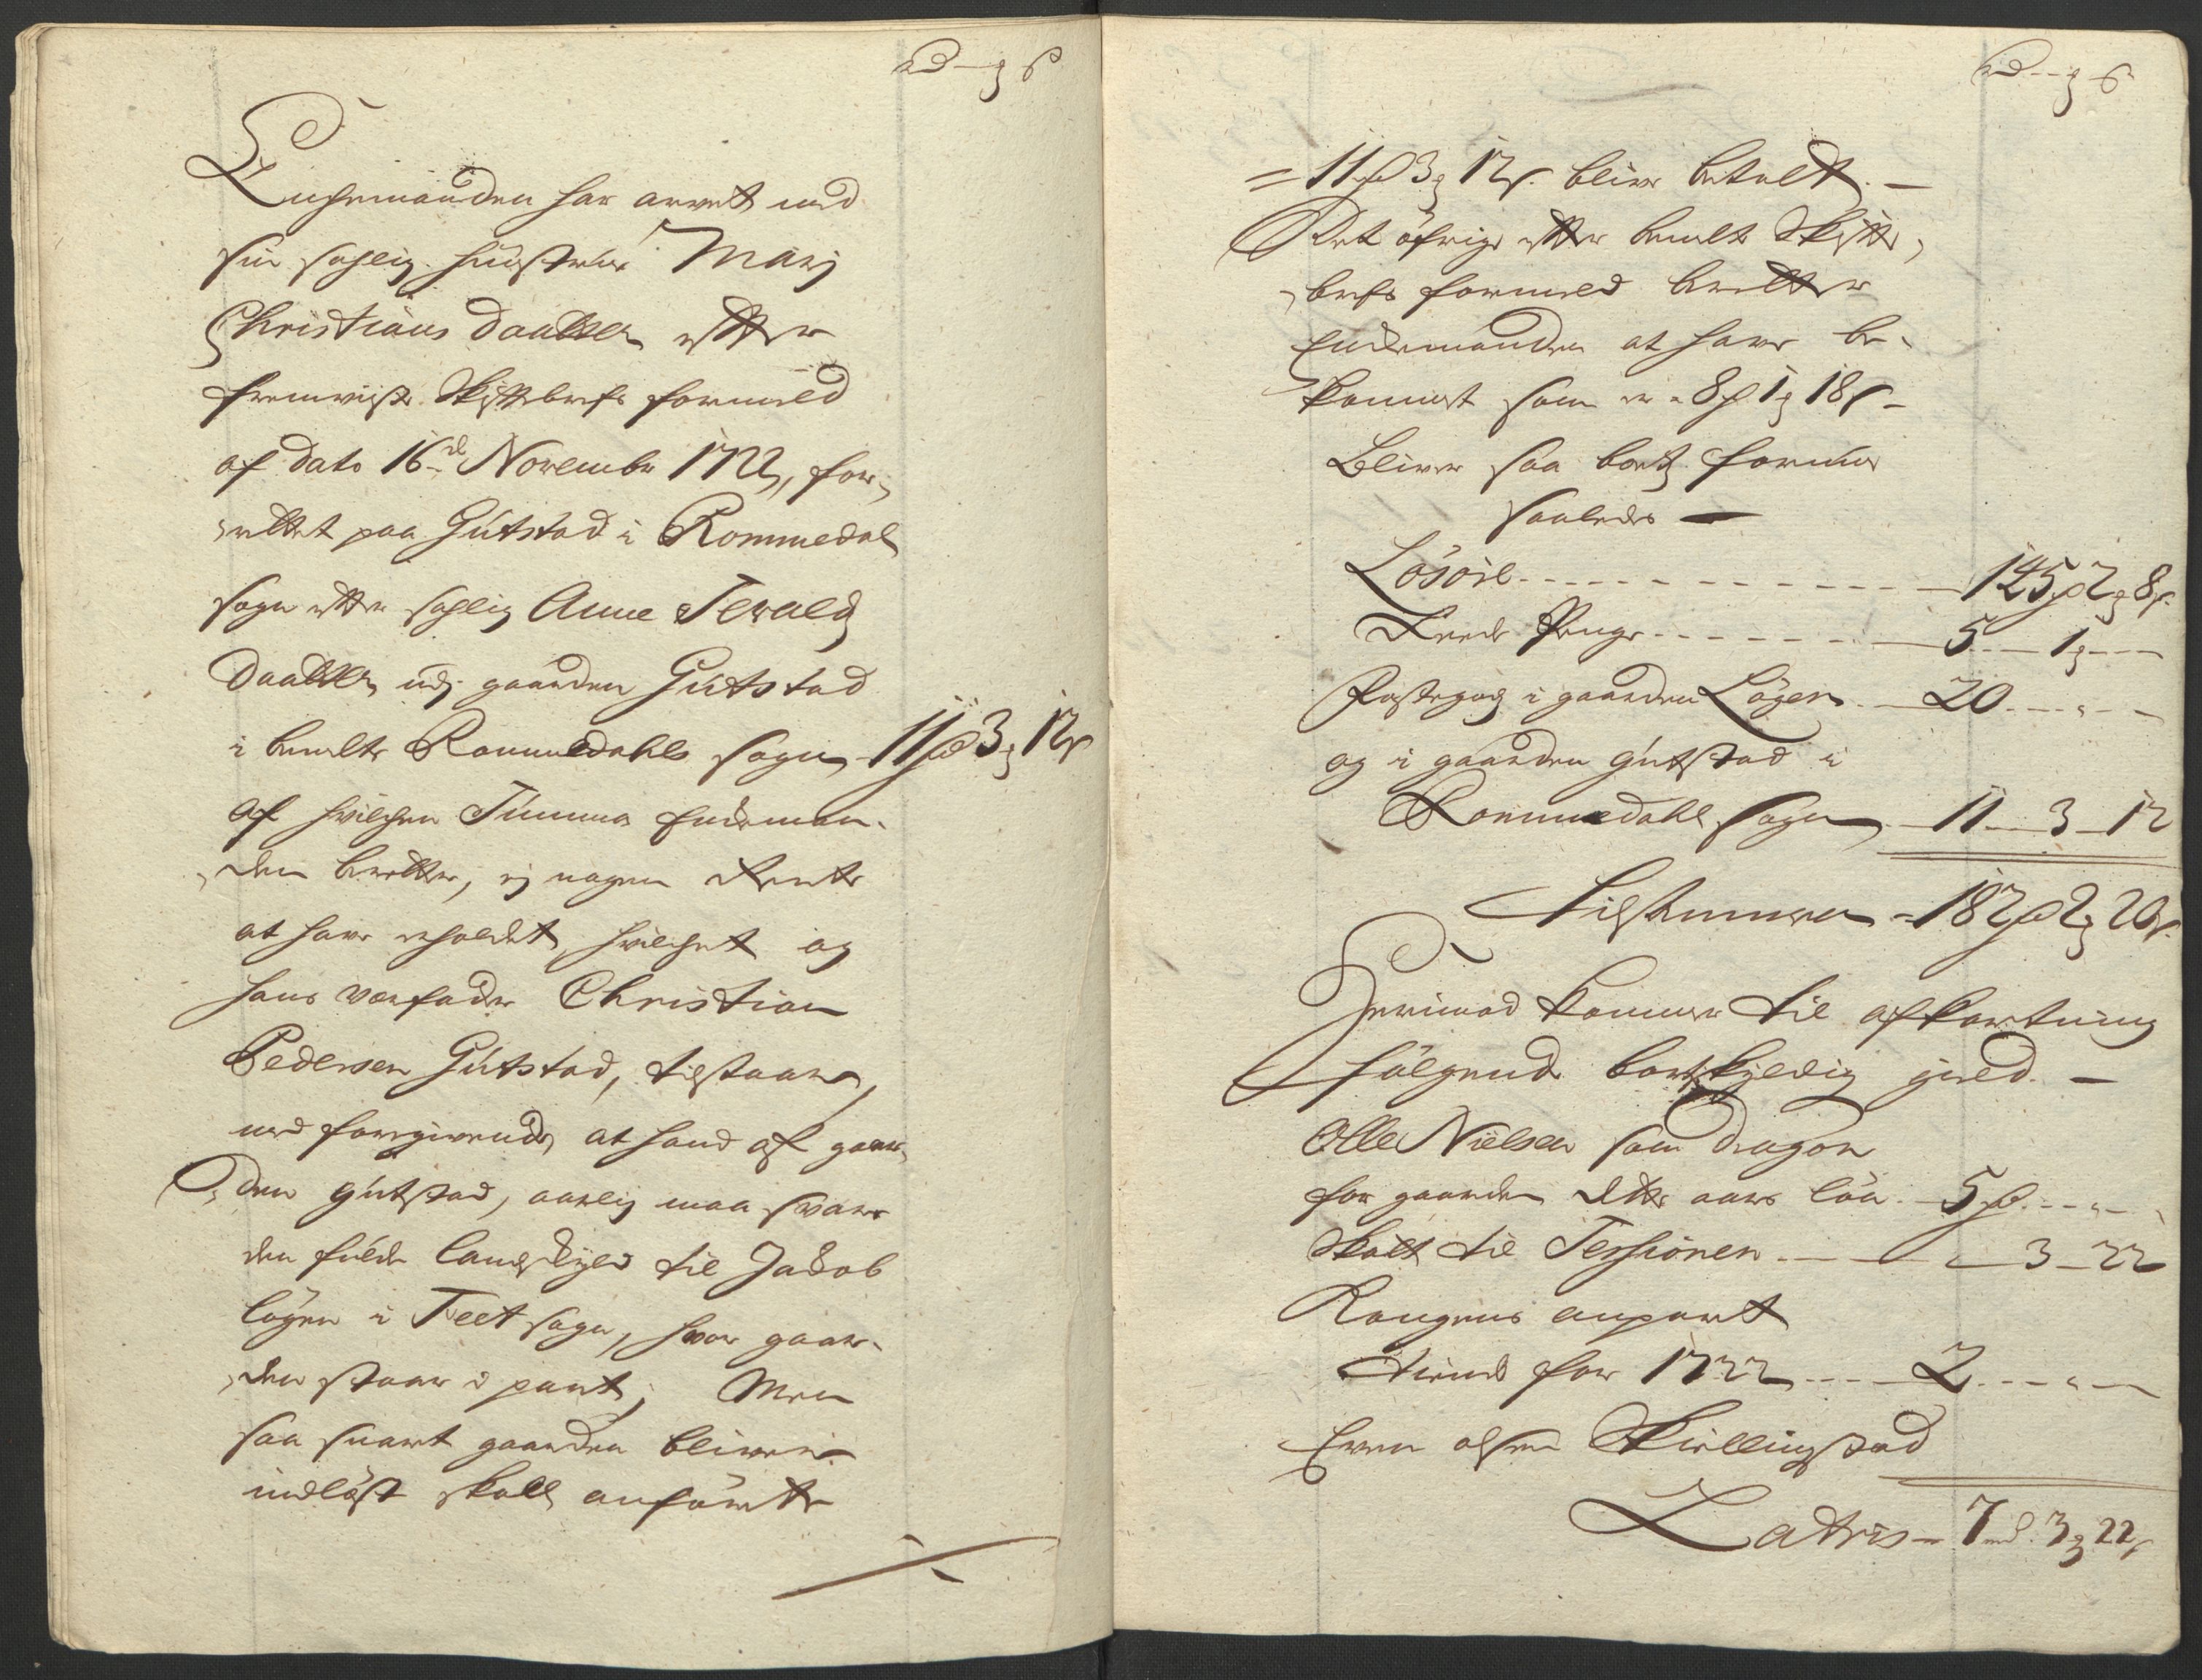 rd – ȝ ß
Enchemanden har arvet med
sin sahlig hüstrue Marj
Christians daatter etter
fremviste Skiftebrefs formeld
af dato 16de Novembr 1722, for,
,rettet paa Gutstad i Rommedal
sogn etter sahlig Anne Tewald
daatter, udj gaarden Gutstad
i bemelte Rommedahls sogn, 11 rd 3 ȝ 12 ß
af hvilchen Summa Enckeman-
,den beretter, ej nogen Rente
at have erholdet, hvilchet og
hans værfader Christian
Pedersen Gutstad, tilstaar,
med forregivende, at hand af gaar,
,den Gutstad, aarlig maa svare
den fulde landskyld til Jacob
Løgen i Feet sogn, hvor gaar-
,den staar i pant, Men
saa snart gaarden bliver
indløst skall anførte
rd – ȝ ß
= 11 rd 3 ȝ 12 ß. blive betalt. –
Det øfrige etter bemelte Skifte,
,brefs formeld beretter
Enckemanden at have be-
kommet som er 8 rd 1 ȝ 18 ß –
Bliver saa boets formue
saaledes –
Løsøre – 145 rd 2 ȝ 8 ß.
Reede Penge – 5 – 1 ȝ –
Pastegods i gaarden Løgen – 20 – „ –
og i gaarden Gutstad i
Rommedahls sogn – 11 – 3 – 12
Tilsammen – 182 rd 2 ȝ 20 ß.
Herimod kommer til afkortning
følgende bortskyldig gield. –
Olle Nielsen som dragon
for gaarden dette aars løn – 5 rd – „ –
Skatt til Terminen – „ – 3 – 22
Kongens anpart
tiende for 1722 – 2 – „ –
Even olsen Skiellingstad
Latris – 7 rd. 3 ȝ 22 ß